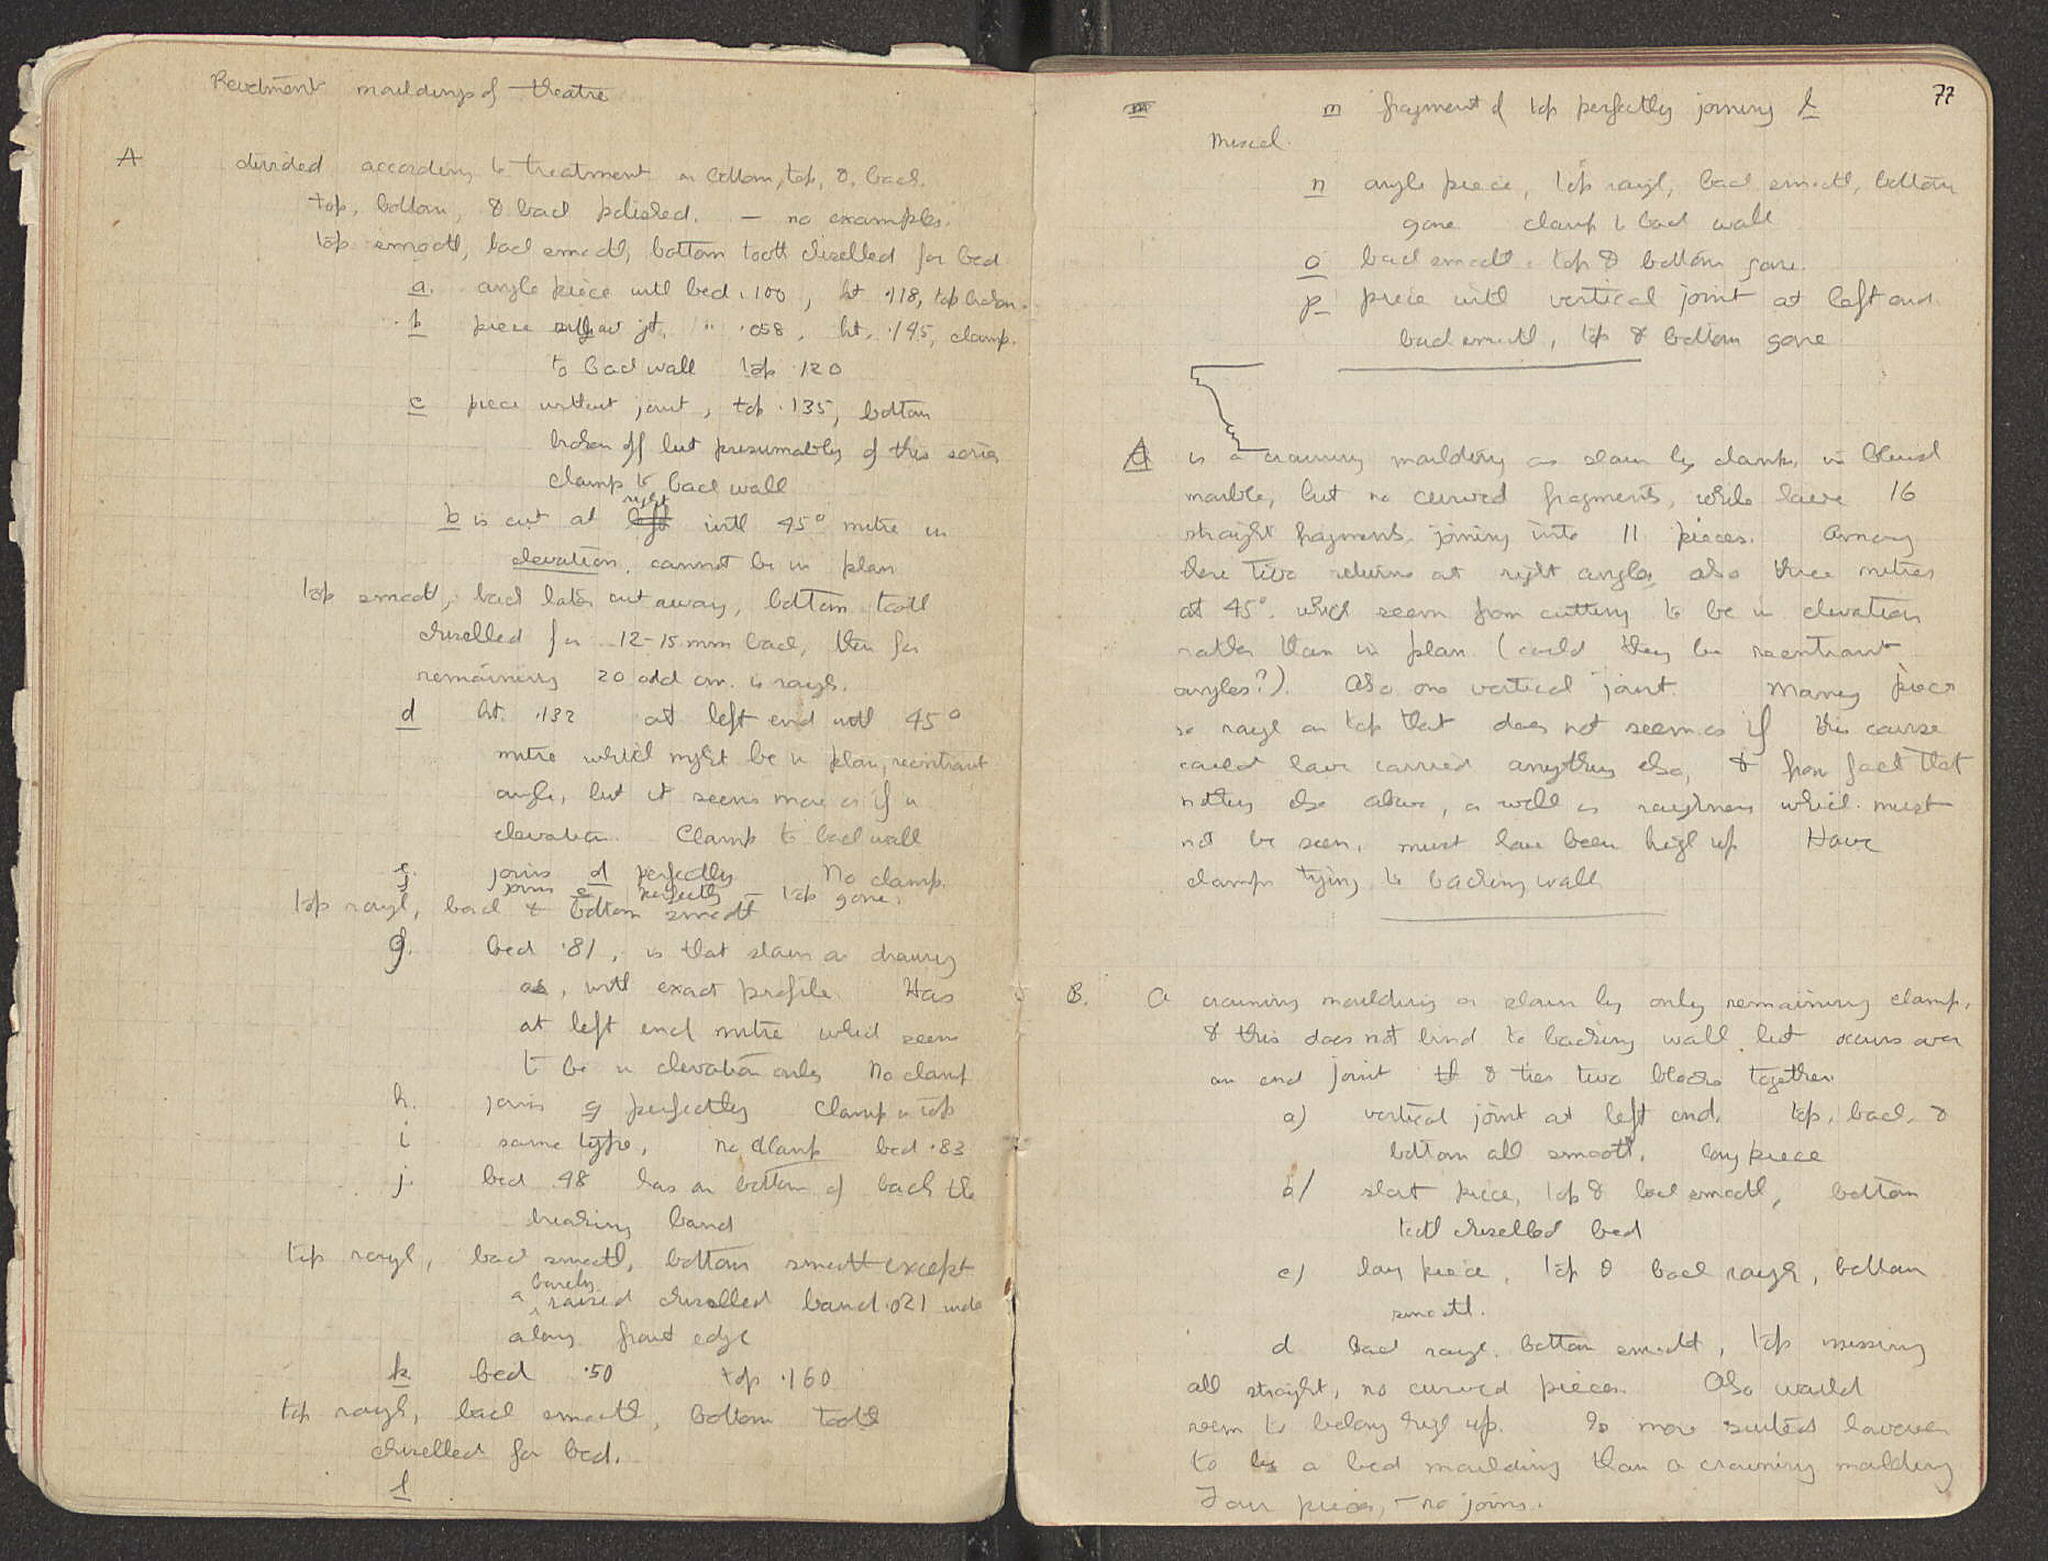 Revetment mouldings of theatre
A divided according to treatment on bottom, top, & back.
top, bottom, & back polished. — no examples.
top smooth, back smooth, bottom tooth chiselled for bed
a. angle piece with bed .100, ht .118, top broken.
b piece jt. " .058, ht. .145, clamp.
to back wall top .120
c piece without joint, top .135, bottom
broken off but presumably of this series
clamp to back wall
b is cut at right with 45° mitre in
elevation, cannot be in plan
top smooth, back later cut away, bottom tooth
chiselled for 12-15 mm back, then for
remaining 20 odd cm. is rough.
d ht. .132 at left end with 45°
mitre which might be in plan, reentrant
angle, but it seems more as if in
elevation. Clamp to back wall
e. joins d perfectly No clamp.
f joins e perfectly — top gone.
top rough, back & bottom smooth
g. bed .81, is that shown on drawing
as, with exact profile. Has
at left end mitre which seems
to be in elevation only No clamp
h. joins g perfectly Clamp in top
i same type, no clamp bed .83
j. bed .48 has on bottom of back the
breaking band
top rough, back smooth, bottom smooth except
a barely raised chiselled band .021 wide
along front edge
k bed .50 top .160
top rough, back smooth, bottom tooth
chiselled for bed.
l
77
m m fragment of top perfectly joining l
Miscel.
n angle piece, top rough, back smooth, bottom
gone clamp to back wall
o back smooth. top & bottom gone.
p piece with vertical joint at left end
back smooth, top & bottom gone
A is a crowning moulding as shown by clamps, in bluish
marble, but no curved fragments, while have 16
straight fragments joining into 11 pieces. Among
these two returns at right angles, also three mitres
at 45° which seem from cutting to be in elevation
rather than in plan (could they be reentrant
angles?). Also one vertical joint. Many pieces
so rough on top that does not seem as if this course
could have carried anything else, & from fact that
nothing else above, as well as roughness which must
not be seen, must have been high up Have
clamps tying to backing wall
B. A crowning moulding as shown by only remaining clamp,
& this does not bind to backing wall but occurs over
an end joint & ties two blocks together.
a) vertical joint at left end. top, back, &
bottom all smooth. long piece
b) short piece, top & back smooth, bottom
tooth chiselled bed
c) long piece, top & back rough, bottom
smooth.
d back rough. bottom smooth, top missing
all straight, no curved pieces. Also would
seem to belong high up. Is more suited however
to be a bed moulding than a crowning moulding
Four pieces, — no joins.